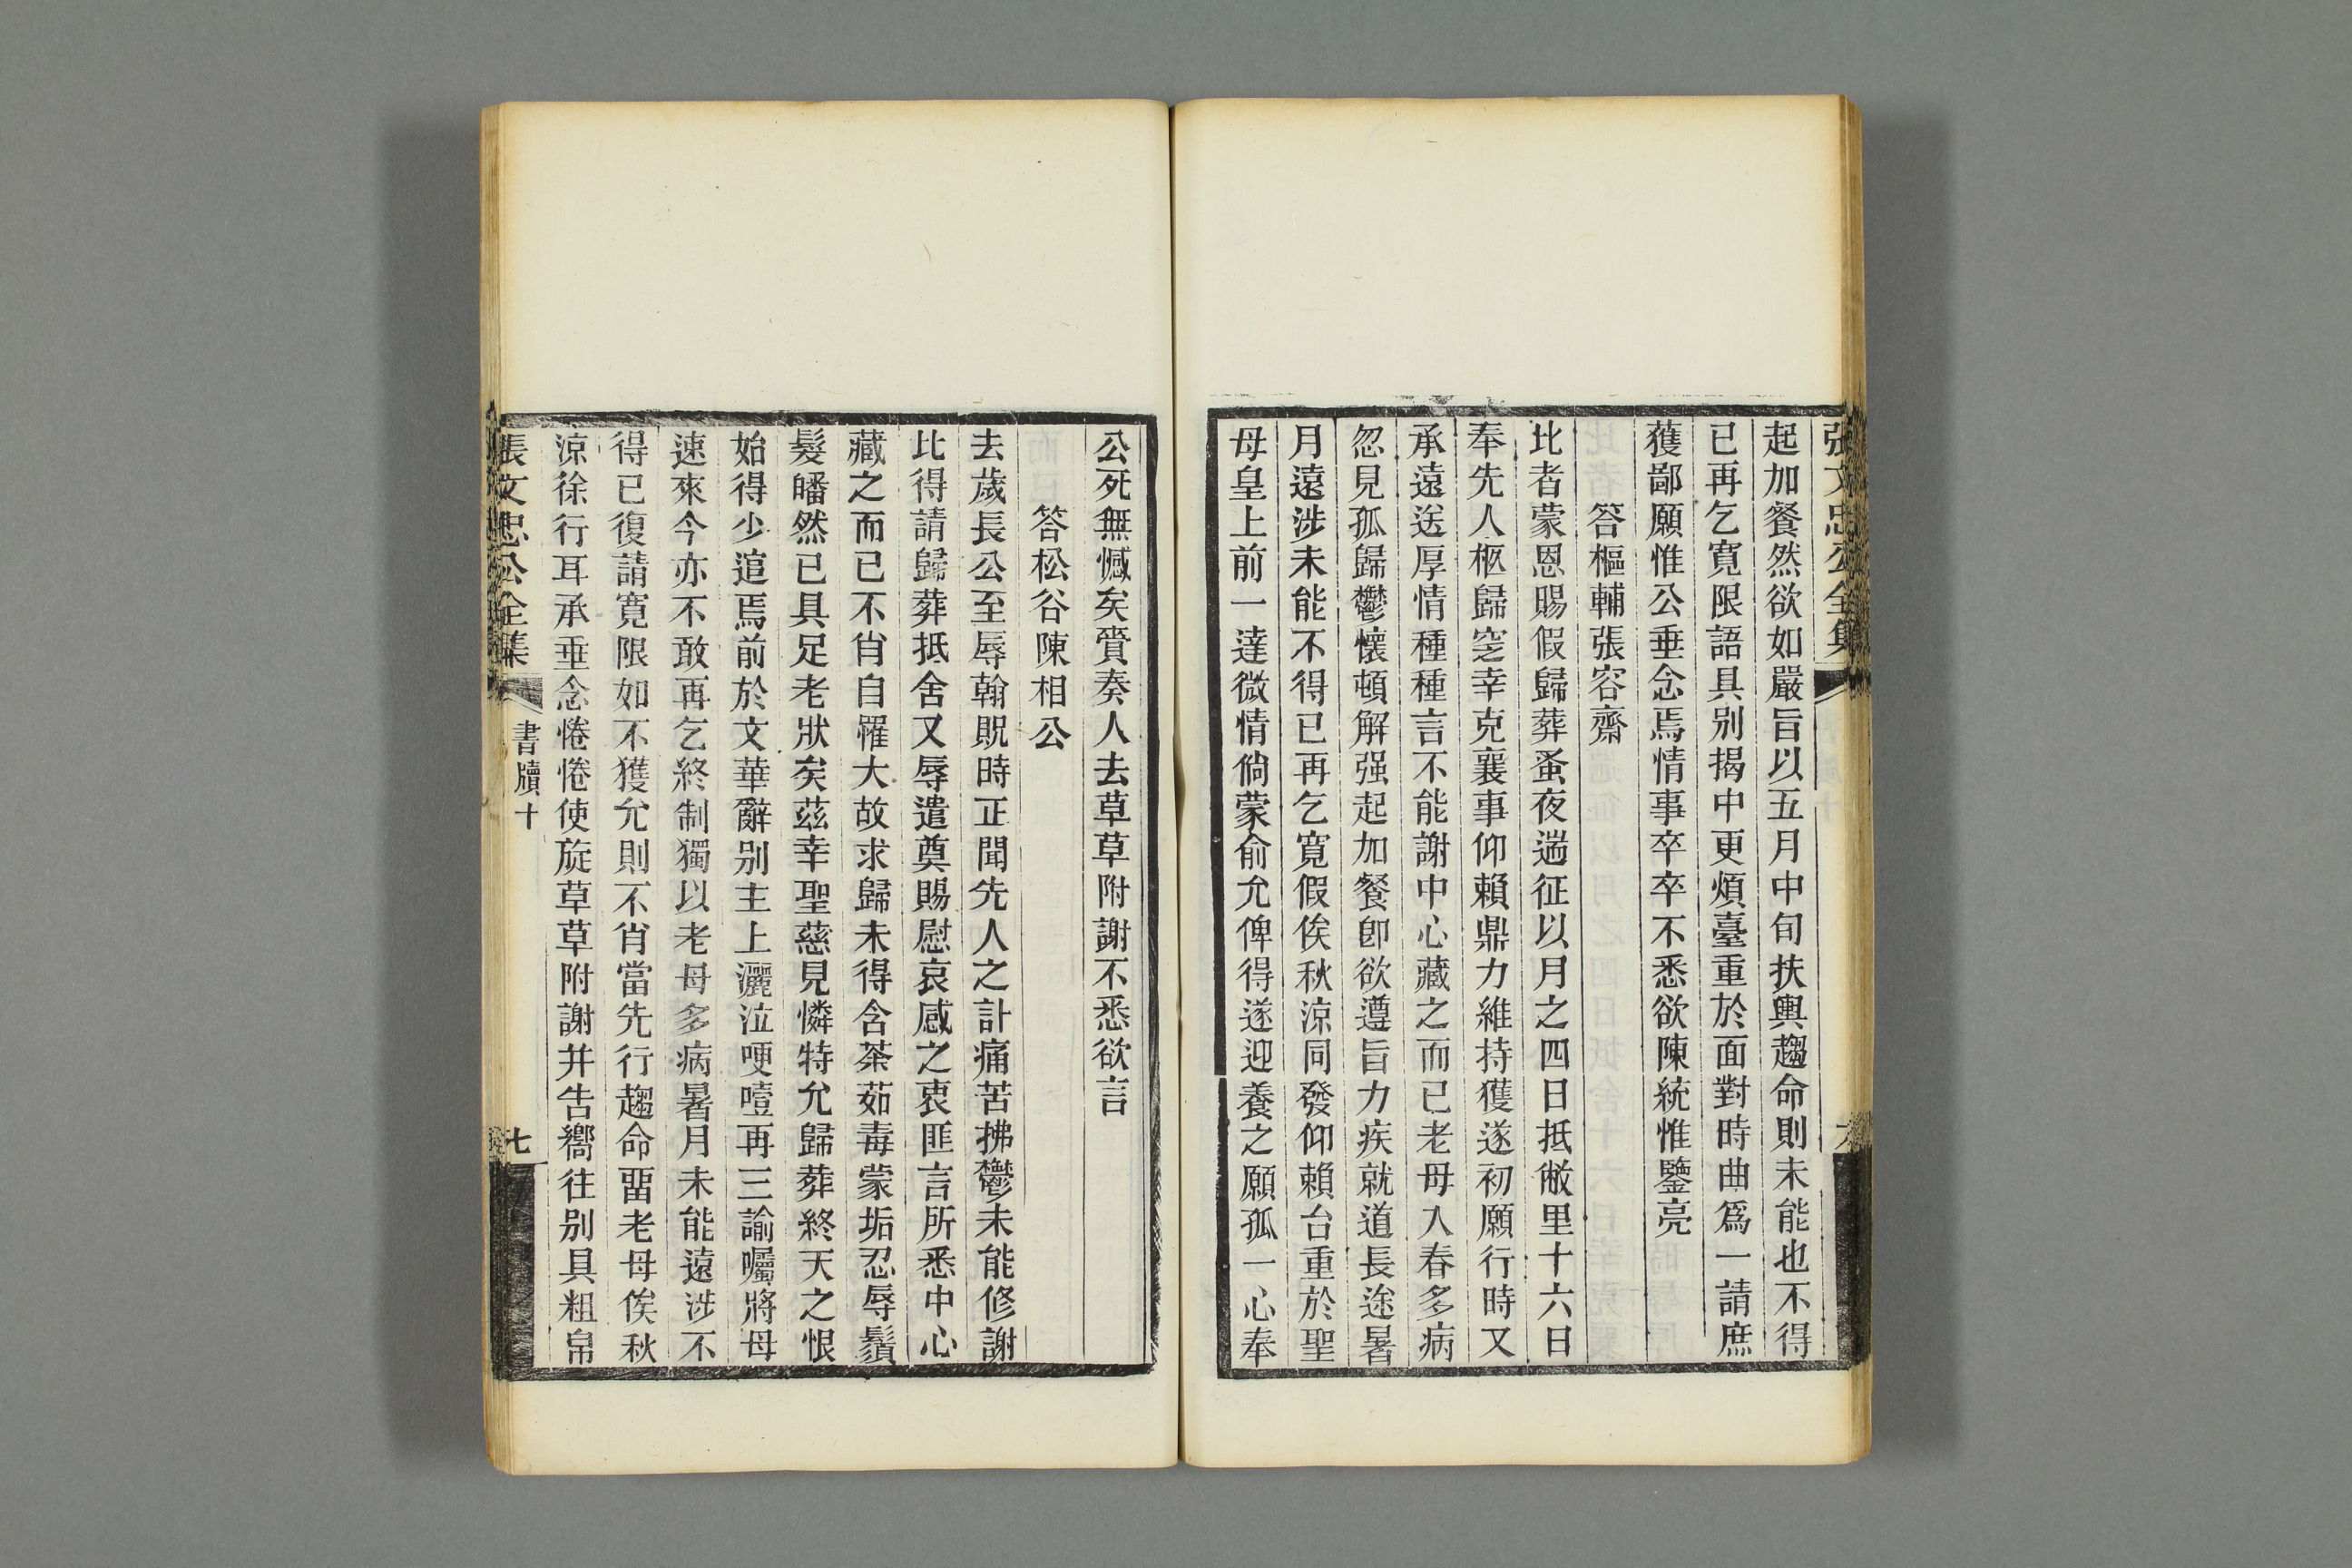 張文忠公全集
六
起加餐然欲如嚴旨以五月中旬扶輿趨命則未能也不得
已再乞寬限語具别揭中更煩臺重於面對時曲爲一請庶
獲鄙願惟公垂念焉情事卒卒不悉欲陳統惟鑒亮
答樞輔張容齋
比者蒙恩賜假歸葬蚤夜遄征以月之四日抵敝里十六日
奉先人柩歸窆幸克襄事仰賴鼎力維持獲遂初願行時又
承遠送厚情種種言不能謝中心藏之而已老母入春多病
忽見孤歸鬱懷頓解强起加餐卽欲遵旨力疾就道長途暑
月遠涉未能不得已再乞寬假俟秋涼同發仰賴台重於聖
母皇上前一達微情倘蒙俞允俾得遂迎養之願孤一心奉
公死無憾矣齎奏人去草草附謝不悉欲言
答松谷陳相公
去歲長公至辱翰貺時正聞先人之訃痛苦拂鬱未能修謝
比得請歸葬抵舍又辱遣奠賜慰哀感之衷匪言所悉中心
藏之而已不肖自罹大故求歸未得含荼茹毒蒙垢忍辱鬚
髮皤然已具足老狀矣茲幸聖慈見憐特允歸葬終天之恨
始得少逭焉前於文華辭别主上灑泣哽噎再三諭囑將母
速來今亦不敢再乞終制獨以老母多病暑月未能遠涉不
得已復請寛限如不獲允則不肖當先行趨命畱老母俟秋
涼徐行耳承垂念惓惓使旋草草附謝并告嚮往别具粗帛
張文忠公全集
書牘十
七